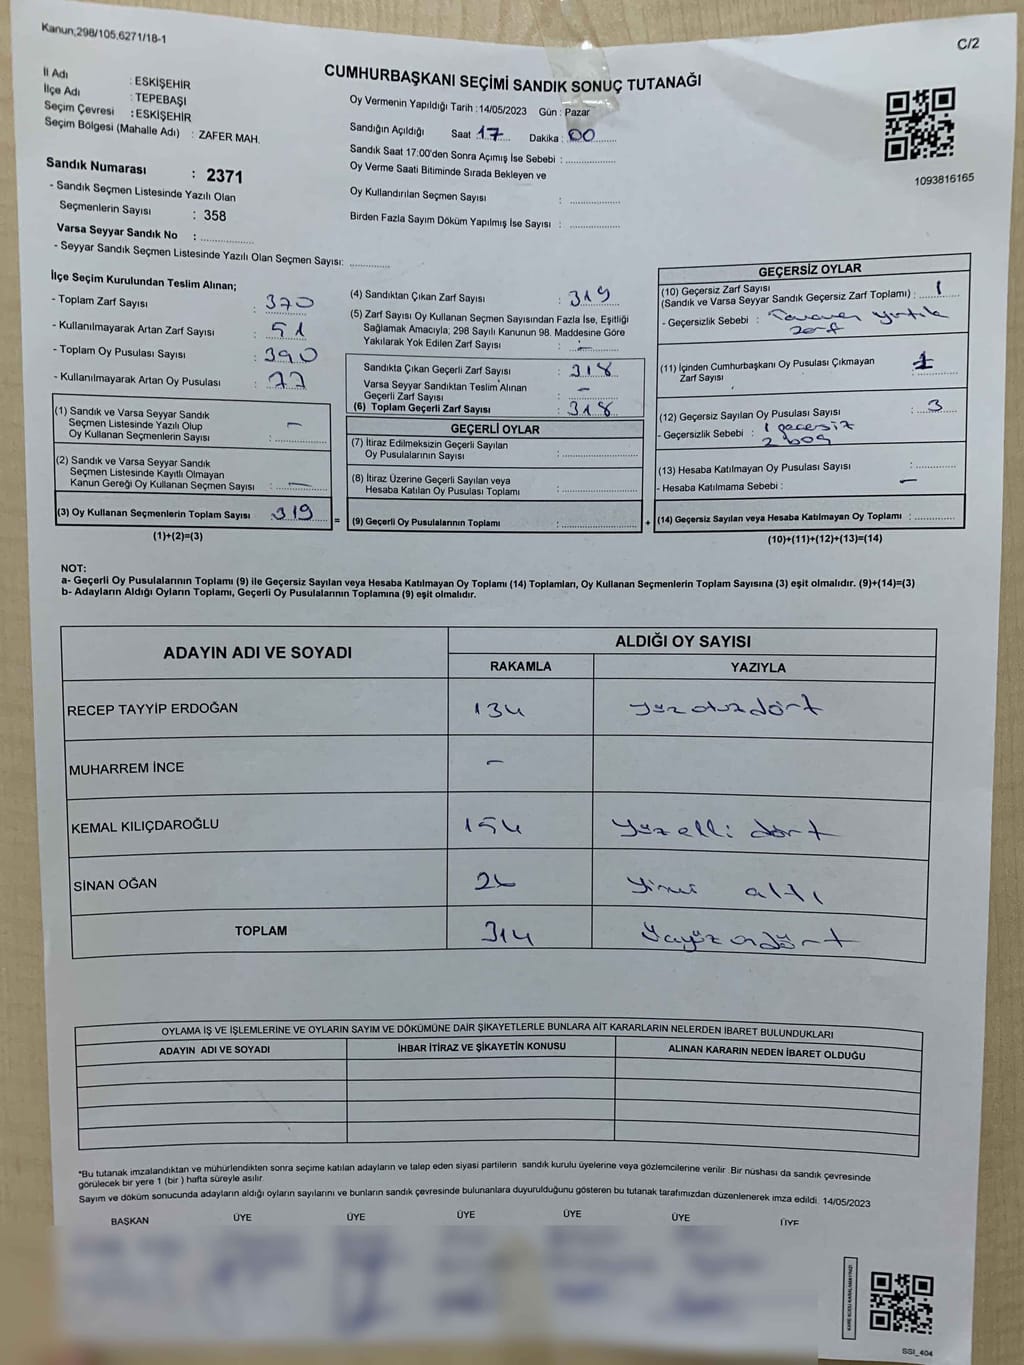 Kanun;298/105,6271/18-1
C/2
CUMHURBAŞKANI SEÇİMİ SANDIK SONUÇ TUTANAĞI
İl Adı : ESKİŞEHİR
İlçe Adı : TEPEBAŞI
Seçim Çevresi : ESKİŞEHİR
Seçim Bölgesi (Mahalle Adı) : ZAFER MAH.
Sandık Numarası : 2371
- Sandık Seçmen Listesinde Yazılı Olan
Seçmenlerin Sayısı : 358
Varsa Seyyar Sandık No : ..............
- Seyyar Sandık Seçmen Listesinde Yazılı Olan Seçmen Sayısı: ............
Oy Vermenin Yapıldığı Tarih : 14/05/2023 Gün : Pazar
Sandığın Açıldığı Saat 17 Dakika : 00
Sandık Saat 17:00'den Sonra Açımış İse Sebebi : ..............
Oy Verme Saati Bitiminde Sırada Bekleyen ve
Oy Kullandırılan Seçmen Sayısı : ..............
Birden Fazla Sayım Döküm Yapılmış İse Sayısı : ..............
1093816165
İlçe Seçim Kurulundan Teslim Alınan;
- Toplam Zarf Sayısı : 370
- Kullanılmayarak Artan Zarf Sayısı : 51
- Toplam Oy Pusulası Sayısı : 390
- Kullanılmayarak Artan Oy Pusulası : 77
(1) Sandık ve Varsa Seyyar Sandık
Seçmen Listesinde Yazılı Olup
Oy Kullanan Seçmenlerin Sayısı : –
(2) Sandık ve Varsa Seyyar Sandık
Seçmen Listesinde Kayıtlı Olmayan
Kanun Gereği Oy Kullanan Seçmen Sayısı : –
(3) Oy Kullanan Seçmenlerin Toplam Sayısı 319
(1)+(2)=(3)
=
(4) Sandıktan Çıkan Zarf Sayısı : 319
(5) Zarf Sayısı Oy Kullanan Seçmen Sayısından Fazla İse, Eşitliği
Sağlamak Amacıyla; 298 Sayılı Kanunun 98. Maddesine Göre
Yakılarak Yok Edilen Zarf Sayısı : –
Sandıkta Çıkan Geçerli Zarf Sayısı : 318
Varsa Seyyar Sandıktan Teslim Alınan
Geçerli Zarf Sayısı : –
(6) Toplam Geçerli Zarf Sayısı : 318
GEÇERLİ OYLAR
(7) İtiraz Edilmeksizin Geçerli Sayılan
Oy Pusulalarının Sayısı : ..............
(8) İtiraz Üzerine Geçerli Sayılan veya
Hesaba Katılan Oy Pusulası Toplamı : ..............
(9) Geçerli Oy Pusulalarının Toplamı : ..............
+
GEÇERSİZ OYLAR
(10) Geçersiz Zarf Sayısı
(Sandık ve Varsa Seyyar Sandık Geçersiz Zarf Toplamı) : 1
- Geçersizlik Sebebi : yırtık
zarf
(11) İçinden Cumhurbaşkanı Oy Pusulası Çıkmayan
Zarf Sayısı 1
(12) Geçersiz Sayılan Oy Pusulası Sayısı : 3
- Geçersizlik Sebebi : 1 geçersiz
2 boş
(13) Hesaba Katılmayan Oy Pusulası Sayısı : ..............
- Hesaba Katılmama Sebebi : –
(14) Geçersiz Sayılan veya Hesaba Katılmayan Oy Toplamı : ..............
(10)+(11)+(12)+(13)=(14)
NOT:
a- Geçerli Oy Pusulalarının Toplamı (9) ile Geçersiz Sayılan veya Hesaba Katılmayan Oy Toplamı (14) Toplamları, Oy Kullanan Seçmenlerin Toplam Sayısına (3) eşit olmalıdır. (9)+(14)=(3)
b- Adayların Aldığı Oyların Toplamı, Geçerli Oy Pusulalarının Toplamına (9) eşit olmalıdır.
ADAYIN ADI VE SOYADI ALDIĞI OY SAYISI
RAKAMLA YAZIYLA
RECEP TAYYİP ERDOĞAN 134 yüz otuz dört
MUHARREM İNCE –
KEMAL KILIÇDAROĞLU 154 yüz elli dört
SİNAN OĞAN 26 yirmi altı
TOPLAM 314 üçyüz ondört
OYLAMA İŞ VE İŞLEMLERİNE VE OYLARIN SAYIM VE DÖKÜMÜNE DAİR ŞİKAYETLERLE BUNLARA AİT KARARLARIN NELERDEN İBARET BULUNDUKLARI
ADAYIN ADI VE SOYADI İHBAR İTİRAZ VE ŞİKAYETİN KONUSU ALINAN KARARIN NEDEN İBARET OLDUĞU
*Bu tutanak imzalandıktan ve mühürlendikten sonra seçime katılan adayların ve talep eden siyasi partilerin sandık kurulu üyelerine veya gözlemcilerine verilir. Bir nüshası da sandık çevresinde
görülecek bir yere 1 (bir ) hafta süreyle asılır.
Sayım ve döküm sonucunda adayların aldığı oyların sayılarını ve bunların sandık çevresinde bulunanlara duyurulduğunu gösteren bu tutanak tarafımızdan düzenlenerek imza edildi. 14/05/2023
BAŞKAN ÜYE ÜYE ÜYE ÜYE ÜYE ÜYE
SSI_404